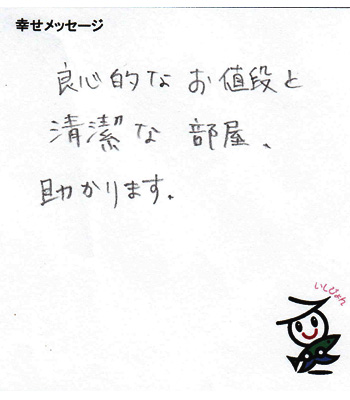 幸せメッセージ
良心的な お値段と
清潔な 部屋、
助かります。
いしぴょん